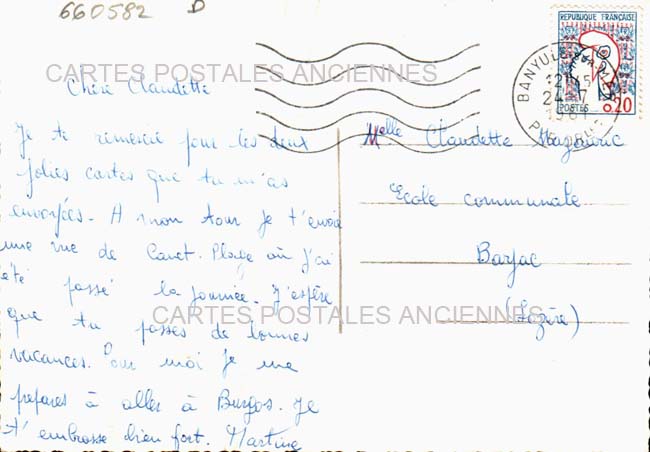 660582 D
REPUBLIQUE FRANÇAISE
POSTES 0,20
BANYULS-SUR-MER
12H45
24-7
1961
PYR. ORLES
CARTES POSTALES ANCIENNES
Chère Claudette
Je te remercie pour les deux
jolies cartes que tu m'as
envoyées. A mon tour je t'envoie
une vue de Canet-Plage où j'ai
été passé la journée. J'espère
que tu passes de bonnes
vacances. Pour moi je me
prepares à aller à Burgos. Je
t'embrasse bien fort. Martine
Melle Claudette Mazauric
Ecole communale
Barjac
(Lozère)
CARTES POSTALES ANCIENNES